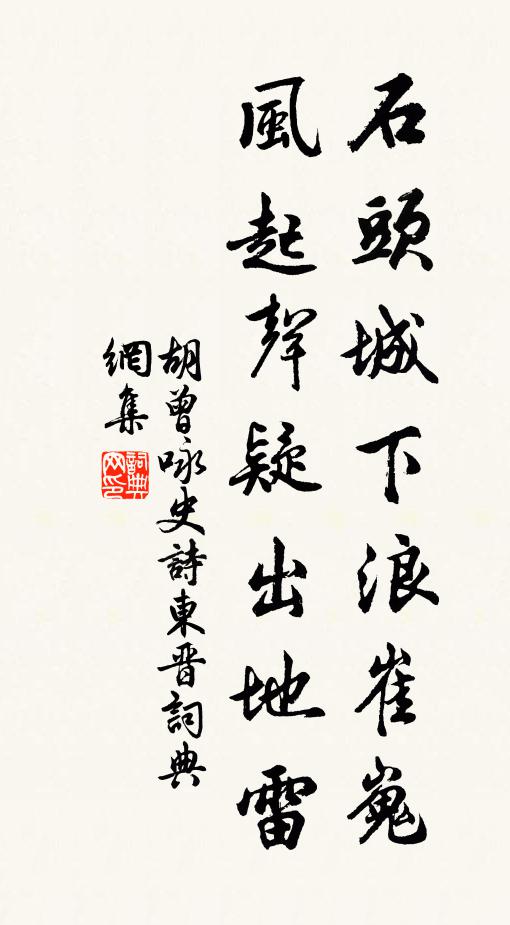 石頭城下浪崔嵬
風起聲疑出地雷
胡曾咏史詩東晋詞典
網集
詞典
网印